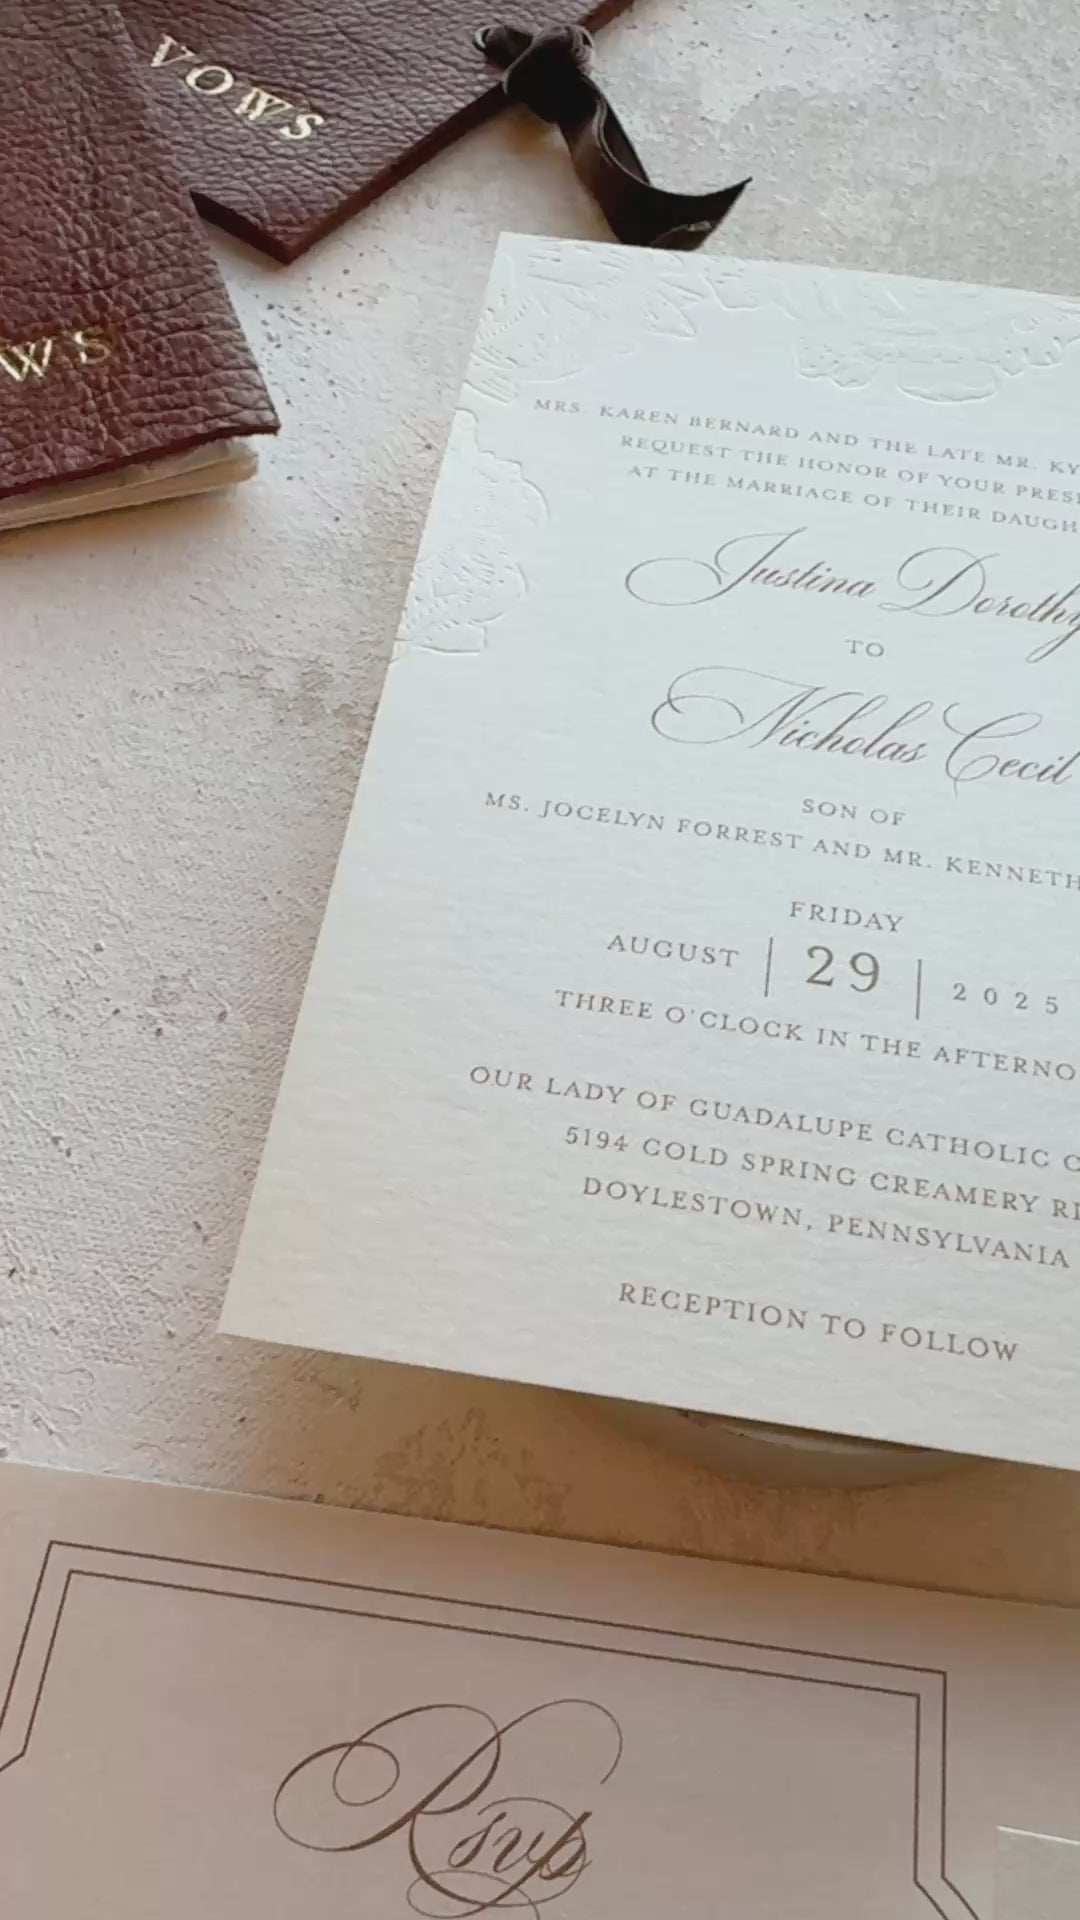 VOWS
WS
MRS. KAREN BERNARD AND THE LATE MR. KY
REQUEST THE HONOR OF YOUR PRES
AT THE MARRIAGE OF THEIR DAUGH
Justina Dorothy
TO
Nicholas Cecil
SON OF
MS. JOCELYN FORREST AND MR. KENNETH
FRIDAY
AUGUST | 29 | 2025
THREE O'CLOCK IN THE AFTERNO
OUR LADY OF GUADALUPE CATHOLIC C
5194 COLD SPRING CREAMERY R
DOYLESTOWN, PENNSYLVANIA
RECEPTION TO FOLLOW
Rsvp